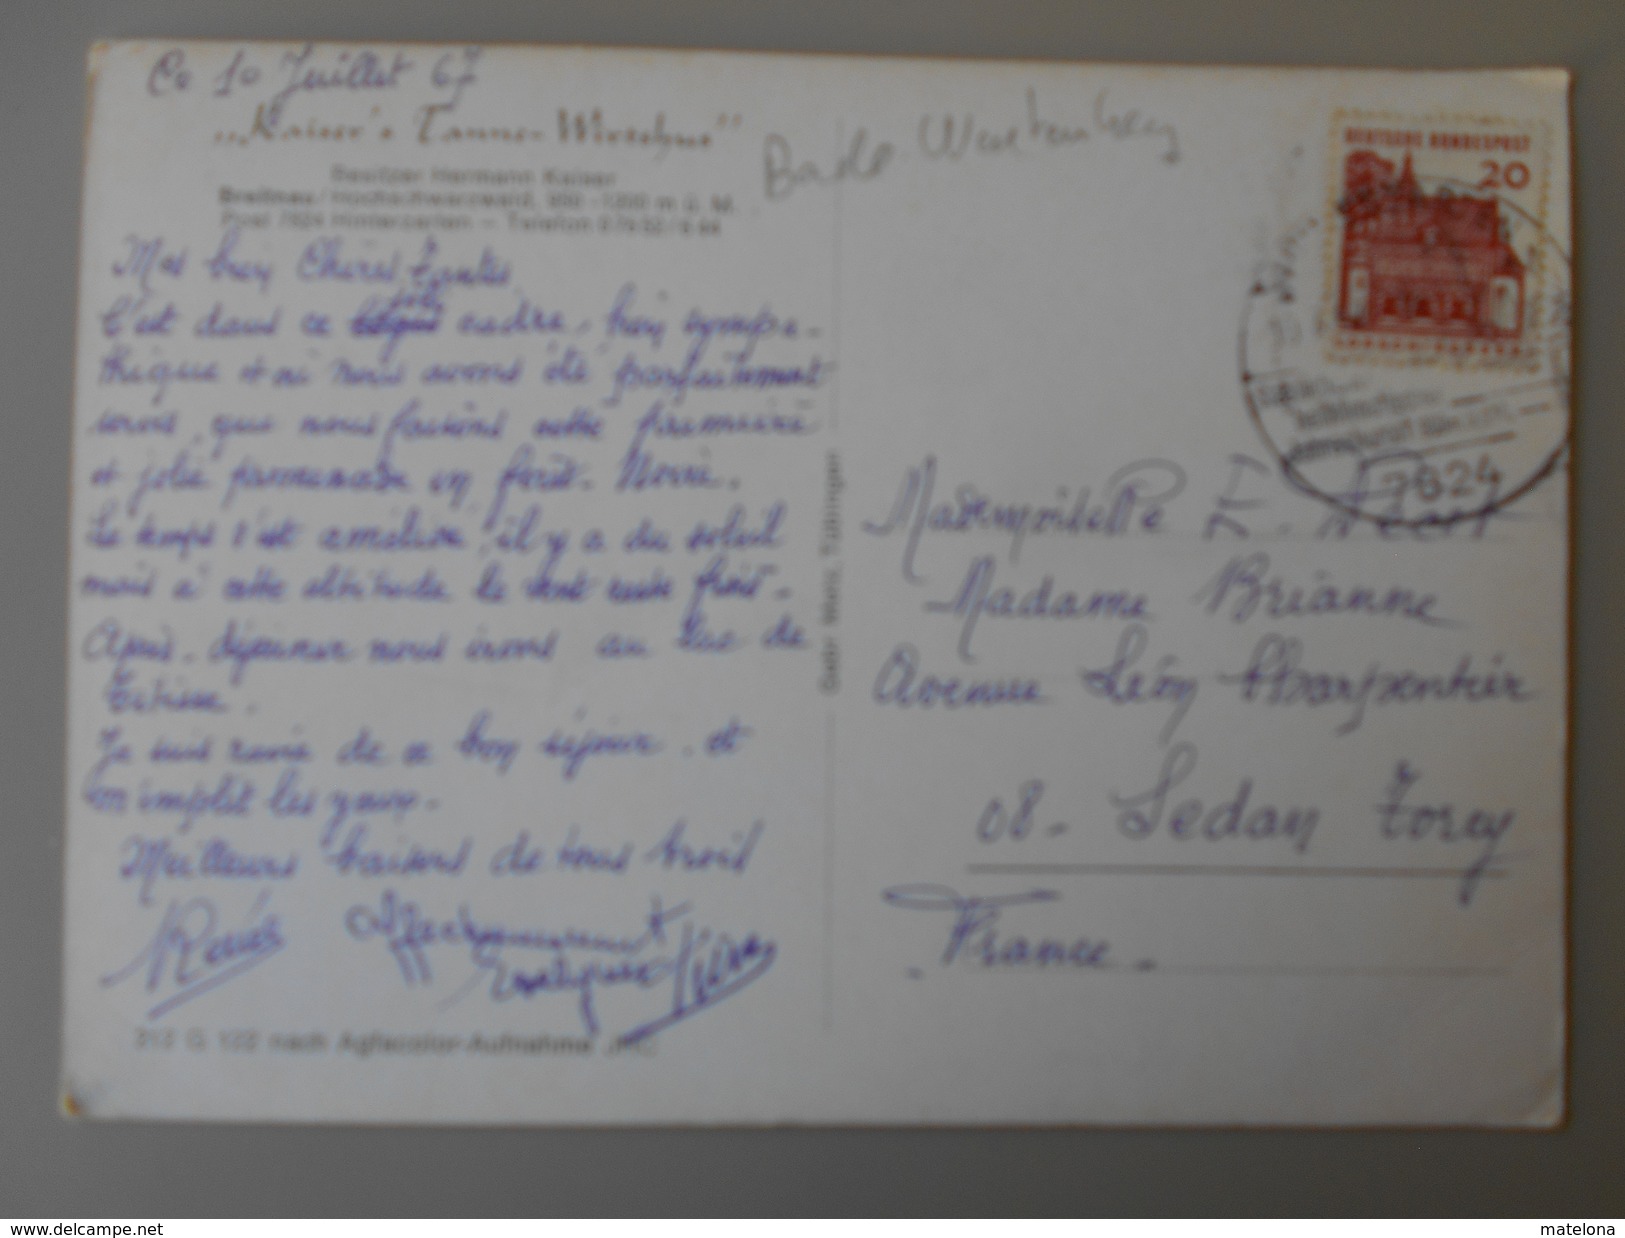 Ce 10 Juillet 67
„Kaiser's Tanne-Wirtshus"
Besitzer Hermann Kaiser
Breitnau/Hochschwarzwald, 950-1200 m ü. M.
Post 7824 Hinterzarten — Telefon
Bade Wurtemberg
Mes bien Chères Tantes
C'est dans ce joli cadre, bien sympa-
thique et où nous avons été parfaitement
servis, que nous faisons notre première
et jolie promenade en forêt-Noire.
Le temps s'est amélioré, il y a du soleil
mais à cette altitude le vent reste froid.
Après déjeuner nous irons au Lac de
Titisee.
Je suis ravie de ce bon séjour et
en emplit les yeux.
Meilleurs baisers de tous trois
Renée Affectueusement
213 G 122 nach Agfacolor-Aufnahme
Gebr. Metz, Tübingen
DEUTSCHE BUNDESPOST
20
7824
Mademoiselle
Madame Brianne
Avenue Léon Charpentier
08 - Sedan Torcy
France.
www.delcampe.net
matelona